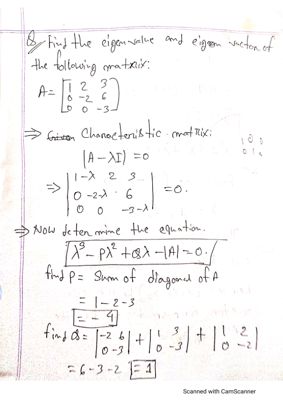 Q Find the eigen value and eigen vector of
the following matrix:
A = [1 2 3
0 -2 6
0 0 -3]
⇒ Characteristic matrix:
|A - λI| = 0
⇒ |1-λ 2 3
0 -2-λ 6
0 0 -3-λ| = 0.
⇒ Now determine the equation.
λ³ - Pλ² + Qλ - |A| = 0.
find P = Sum of diagonal of A
= 1 - 2 - 3
= -4
find Q = |-2 6 / 0 -3| + |1 3 / 0 -3| + |1 2 / 0 -2|
= 6 - 3 - 2 = 1
Scanned with CamScanner